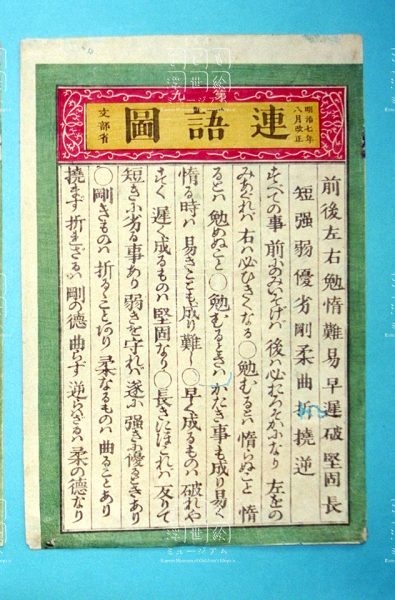 明治七年
八月改正
第九
連語圖
文部省
前後左右勉惰難易早遅破堅固長
短强弱優劣剛柔曲折撓逆
すべての事 前にのみいそげバ 後ハ心おろそかになり 左をの
みあれバ 右ハ心ひきくなる〇勉むるとハ 惰らぬこと 惰
るとハ 勉めぬこと〇勉むるときハ かたき事も成り易く
惰る時ハ 易きことも成り難し〇早く成るものハ 破れや
すく 遅く成るものハ 堅固なり〇長きにほこれバ 反りて
短きに劣る事あり 弱きを守れバ 遂に 强きに優るときあり
〇剛きものハ 折るゝことあり 柔なるものハ 曲ることあり
撓まず 折れざるハ 剛の德 曲らず 逆らハざるハ 柔の德なり
浮世絵
ミュージアム